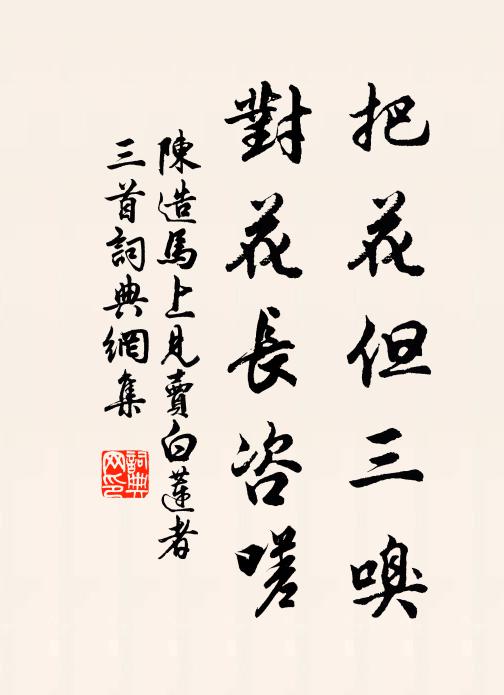 把花但三嗅
對花長咨嗟
陳造馬上見賣白蓮者
三首詞典網集
詞典
网印